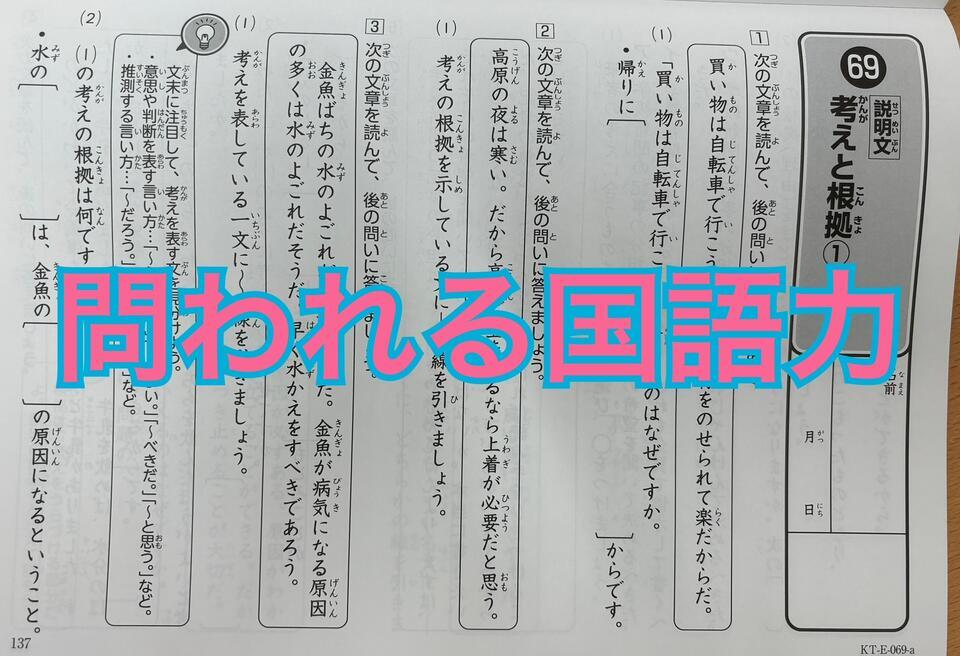 69
説明文
考えと根拠①
月
日
1 次の文章を読んで、後の問い
買い物は自転車で行こう
をのせられて楽だからだ。
(1)「買い物は自転車で行こ
のはなぜですか。
・帰りに[ ]からです。
2 次の文章を読んで、後の問いに答えましょう。
高原の夜は寒い。だから高
るなら上着が必要だと思う。
(1) 考えの根拠を示している
線を引きましょう。
3 次の文章を読んで、後の問いに答
金魚ばちの水のよごれが
た。金魚が病気になる原因
の多くは水のよごれだそうだ。早く水かえをすべきであろう。
(1) 考えを表している一文に〜
線を
きましょう。
文末に注目して、考えを表す文を見
・意思や判断を表す言い方…「〜
い。」「〜べきだ。」「〜と思う。」など。
・推測する言い方…「〜だろう。」
など。
(2) (1)の考えの根拠は何です
・水の[ ]は、金魚の[ ]の原因になるということ。
問われる国語力
137
KT-E-069-a